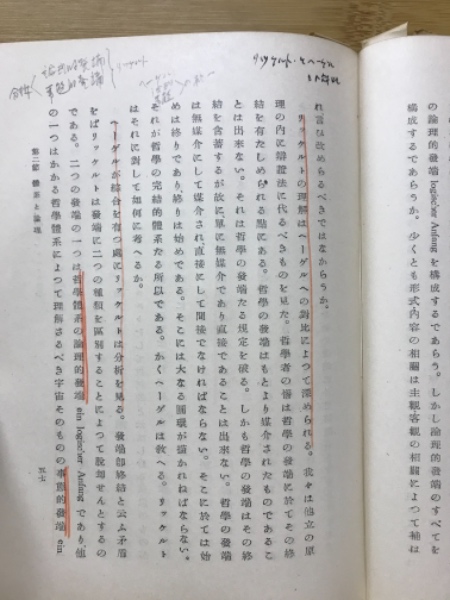 の論理的發端 logischer Anfang を構成するであらう。しかし論理的發端のすべてを
構成するであらうか。少くとも形式内容の相關は主觀客觀の相關によつて補は
れ言ひ改めらるべきではなからうか。
リッケルトの理解はヘーゲルへの對比によつて深められる。我々は他立の原
理の内に辯證法に代るべきものを見た。哲學者の惱は哲學の發端に於てその終
結を有たしめられる點にある。哲學の發端はもとより媒介されたものであるこ
とは出來ない。それは哲學の發端たる規定を破る。しかも哲學の發端はその終
結を含蓄するが故に、單に無媒介であり直接であることは出來ない。哲學の發端
は無媒介にして媒介され、直接にして間接でなければならない。そこに於ては始
めは終りであり、終りは始めである。そこには大なる圓環が描かれねばならない。
それが哲學の完結的體系たる所以である。かくヘーゲルは敎へる。リッケルト
はそれに對して如何に考へるか。
ヘーゲルが綜合を有つ處にリッケルトは分析を見る。發端卽終結と云ふ矛盾
をばリッケルトは發端に二つの種類を區別することによつて脫却せんとするの
である。二つの發端の一つは哲學體系の論理的發端 ein logischer Anfang であり、他
の一つはかかる哲學體系によつて理解さるべき宇宙そのものの事實的發端 ein
第二節 體系と論理
五七
リッケルト・ヘーゲル